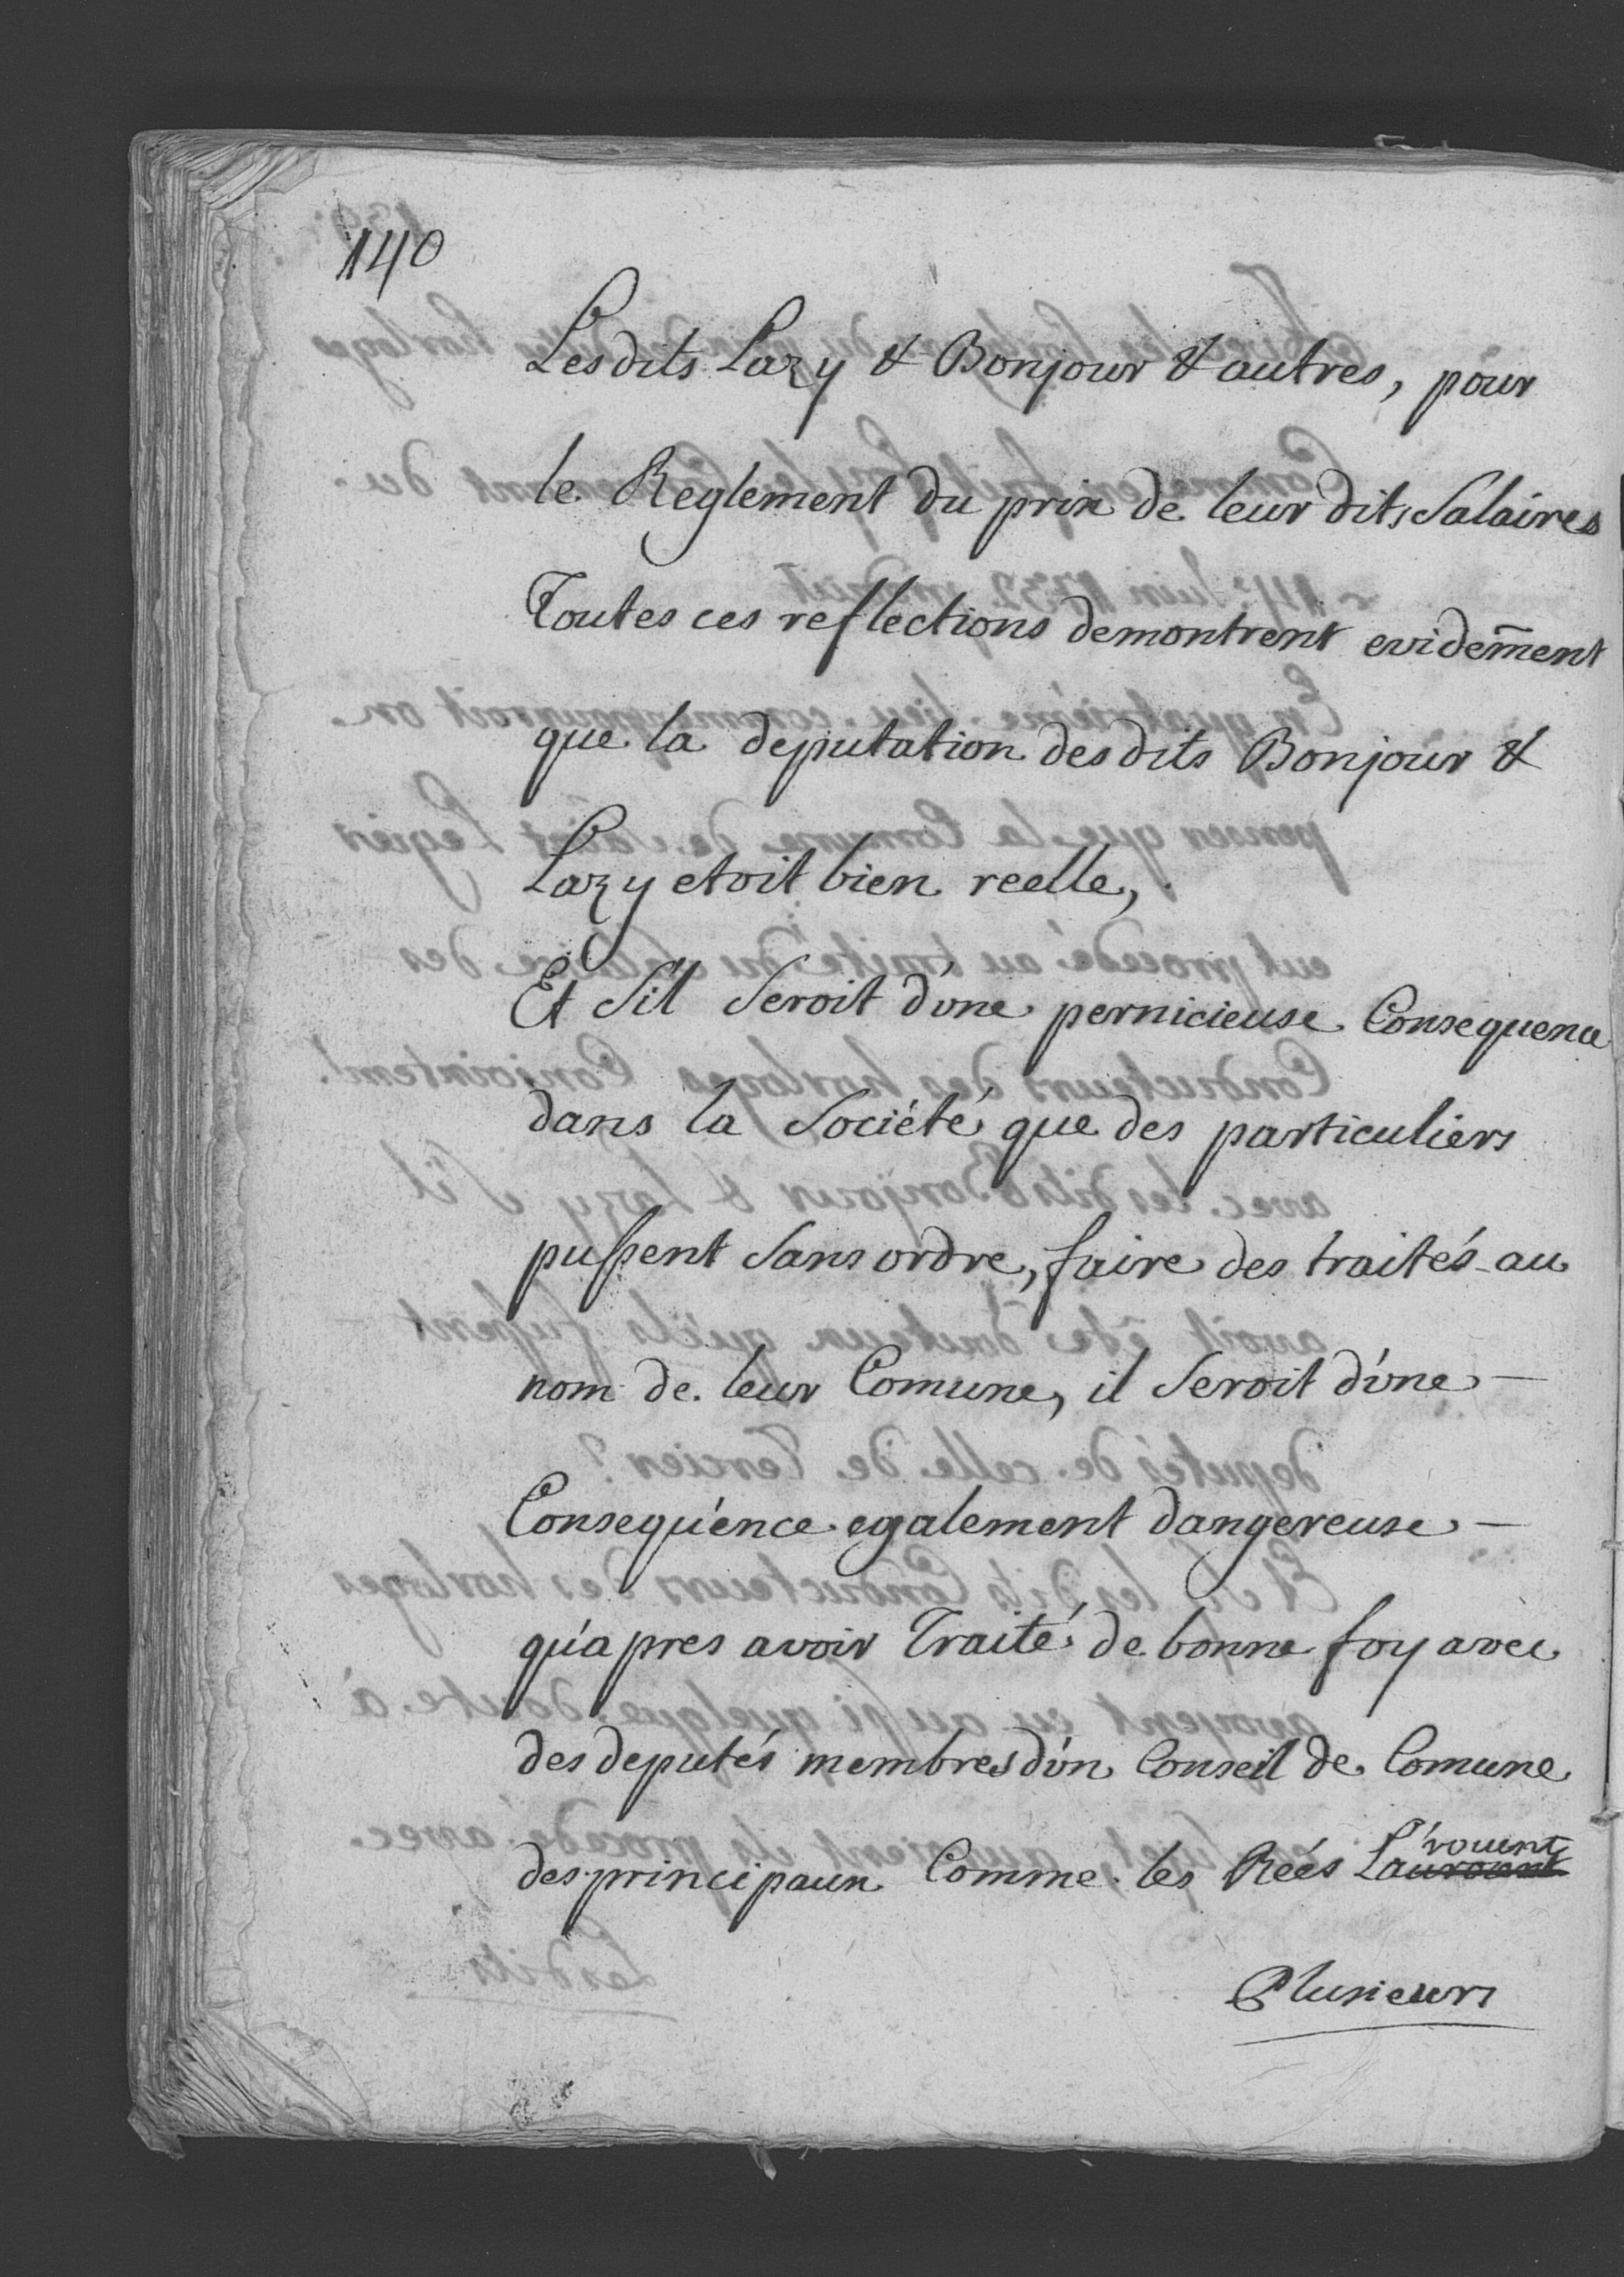 140
Lesdits Lazy & Bonjour & autres, pour
le Reglement du prix de leur dits Salaires
Toutes ces reflections demontrent evidem̄ent
que la deputation desdits Bonjour &
Lazy etoit bien reelle,
Et S'il Seroit d'une pernicieuse Consequence
dans la Société que des particuliers
pussent Sans ordre, faire des traités au
nom de leur Comune, il Seroit d'une
Consequence egalement dangereuse
qu'apres avoir Traité de bonne foy avec
des deputés membres d'un Conseil de Comune
des principaux Comme les Réés L'avouent
Plusieurs